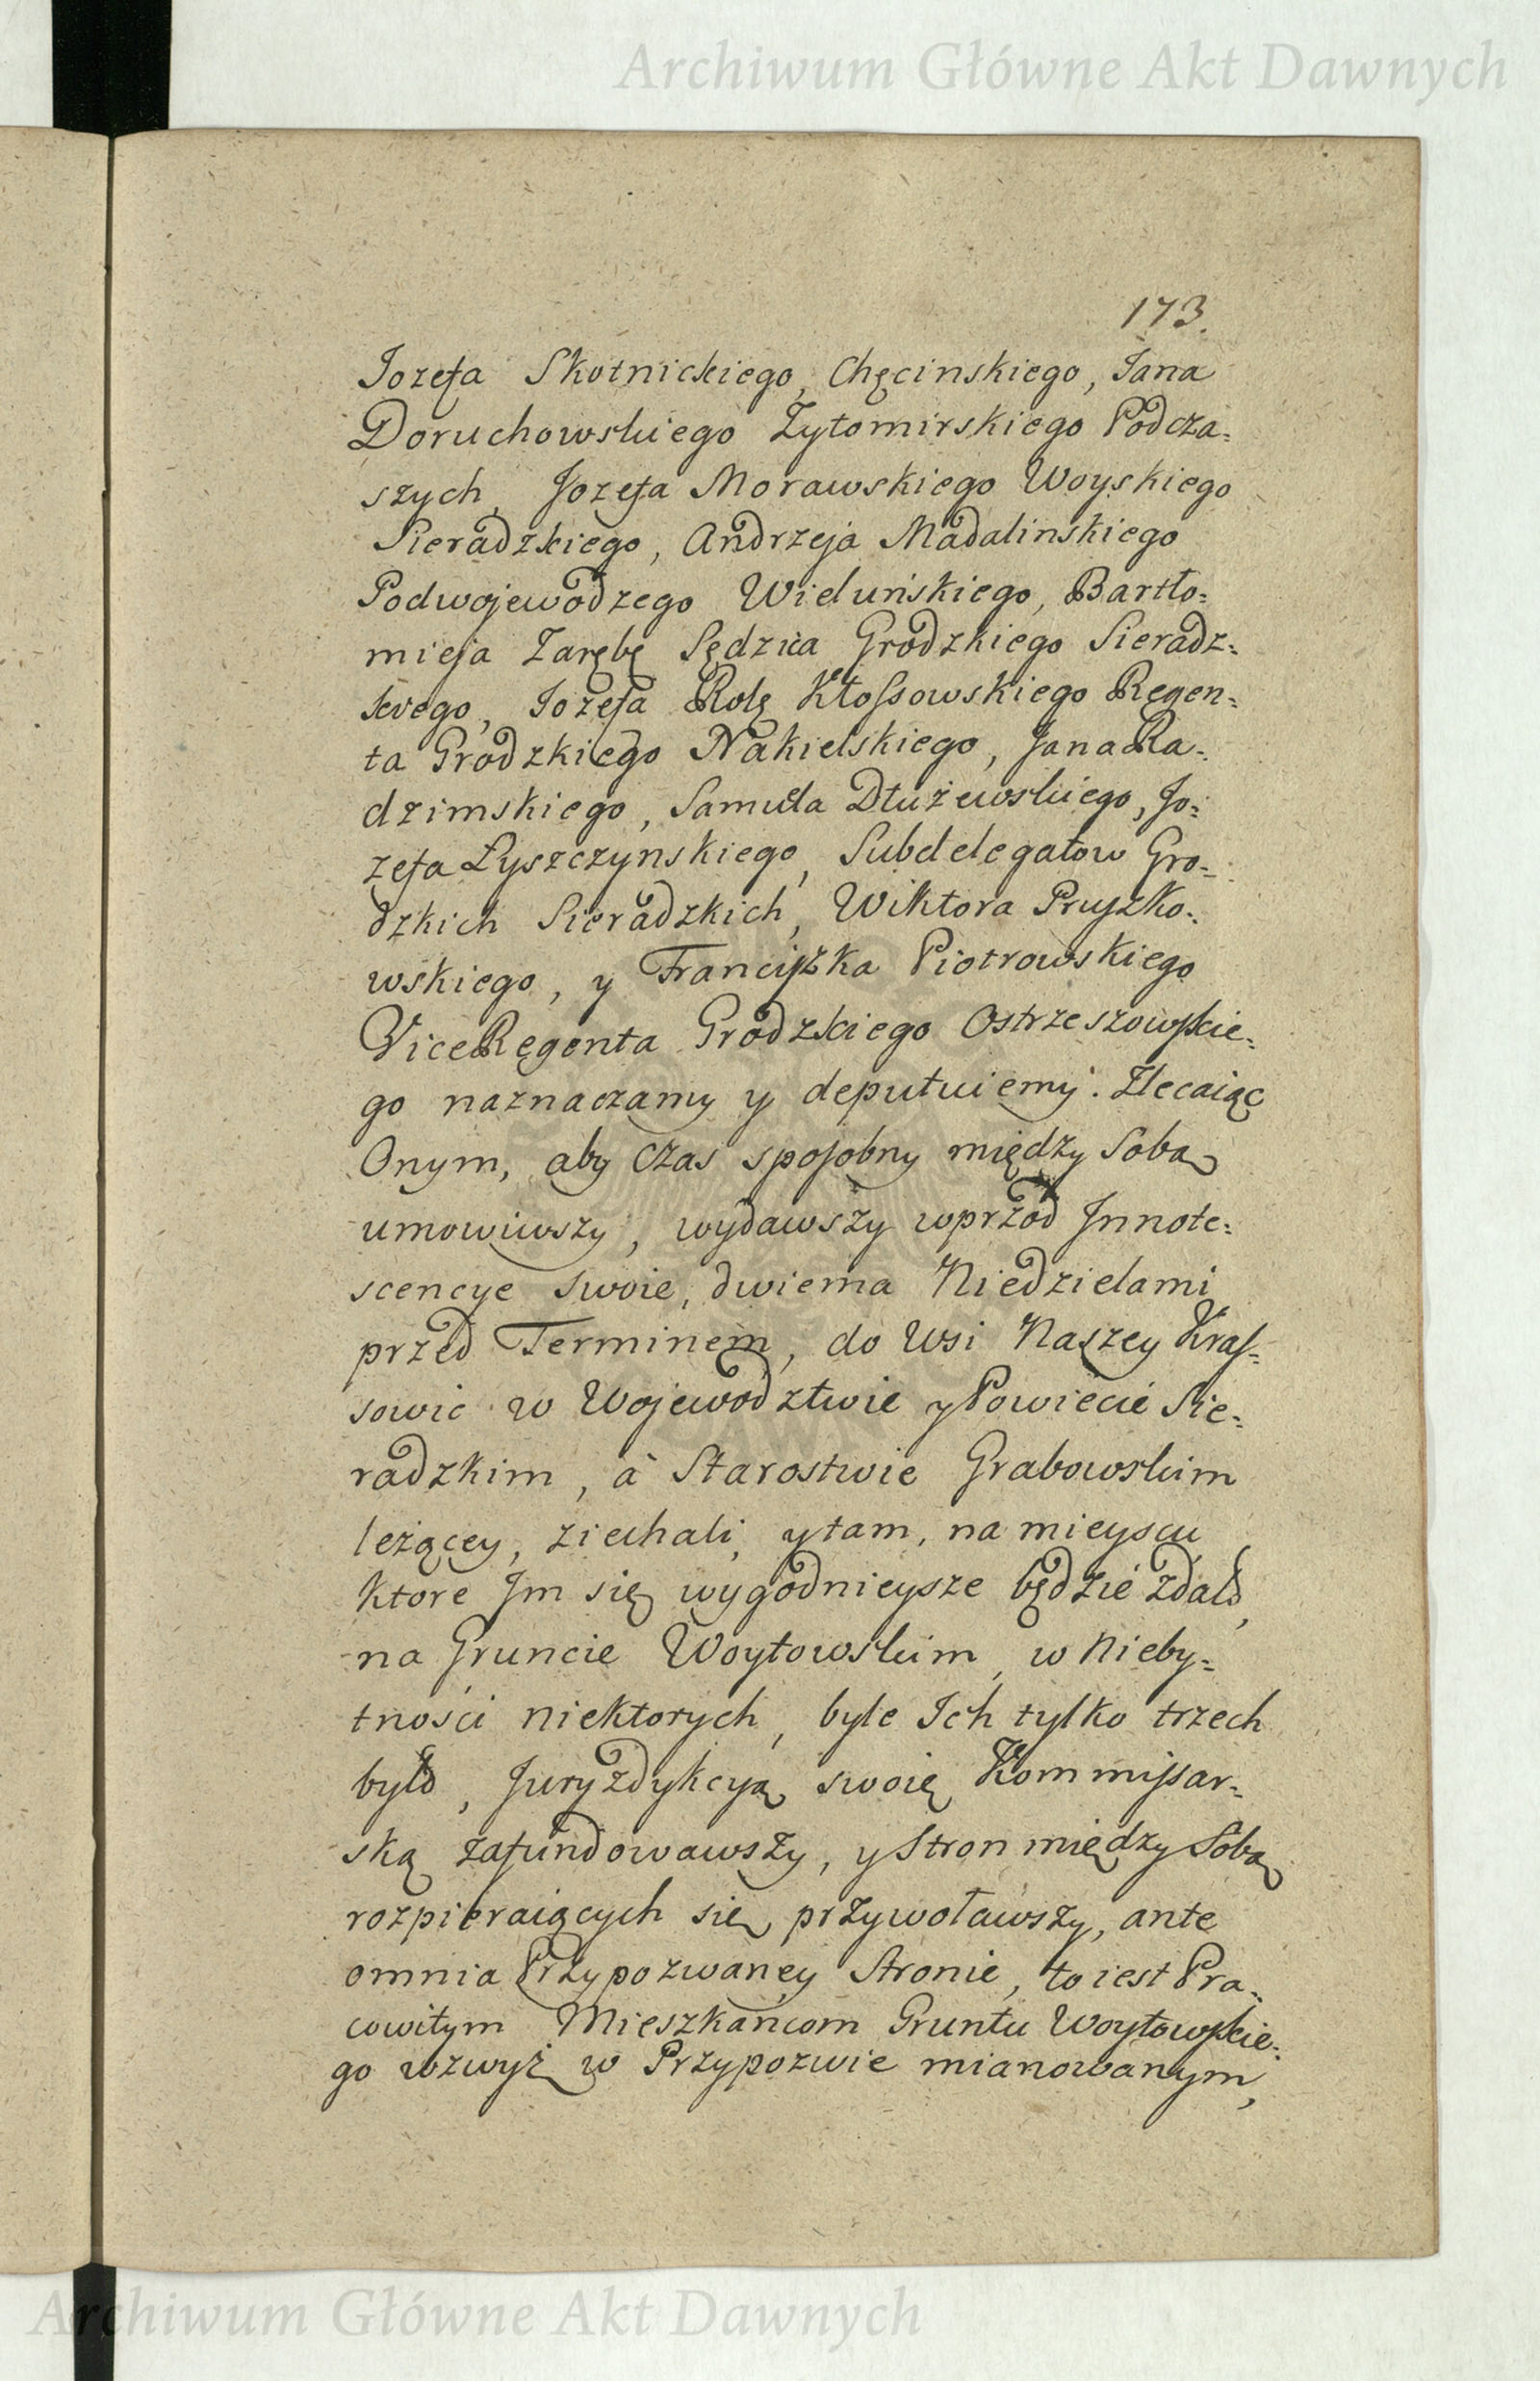 Archiwum Główne Akt Dawnych
173.
Jozefa Skotnickiego, Chęcinskiego, Jana
Doruchowskiego Zytomirskiego Podcza=
szych, Jozefa Morawskiego Woyskiego
Sieradzkiego, Andrzeja Madalinskiego
Podwojewodzego Wieluńskiego, Bartło=
mieja Zarębę Sędzica Grodzkiego Sieradz=
kiego, Jozefa Rolę Kłossowskiego Regen=
ta Grodzkiego Nakielskiego, Jana Ra=
dzimskiego, Samuela Dłużewskiego, Jo=
zefa Łyszczynskiego, Subdelegatow Gro=
dzkich Sieradzkich, Wiktora Pruszko=
wskiego, y Franciszka Piotrowskiego
ViceRegenta Grodzkiego Ostrzeszowskie=
go naznaczamy y deputuiemy. Zlecaiąc
Onym, aby czas sposobny między Sobą
umowiwszy, wydawszy wprzod Jnnote=
scencye swoie, dwiema Niedzielami
przed Terminem, do Wsi Naszey Kras=
sowic w Wojewodztwie y Powiecie Sie=
radzkim, à Starostwie Grabowskim
leżącey, ziechali, y tam, na mieyscu
ktore Jm się wygodnieysze będzie zdało,
na Gruncie Woytowskim, w Nieby=
tności niektorych, byle Ich tylko trzech
było, Juryzdykcyą swoię Kommissar=
ską zafundowawszy, y Stron między Sobą
rozpieraiących się przywoławszy, ante
omnia Przypozwaney Stronie, to iest Pra=
cowitym Mieszkańcom Gruntu Woytowskie=
go wzwyż w Przypozwie mianowanym,
Archiwum Główne Akt Dawnych